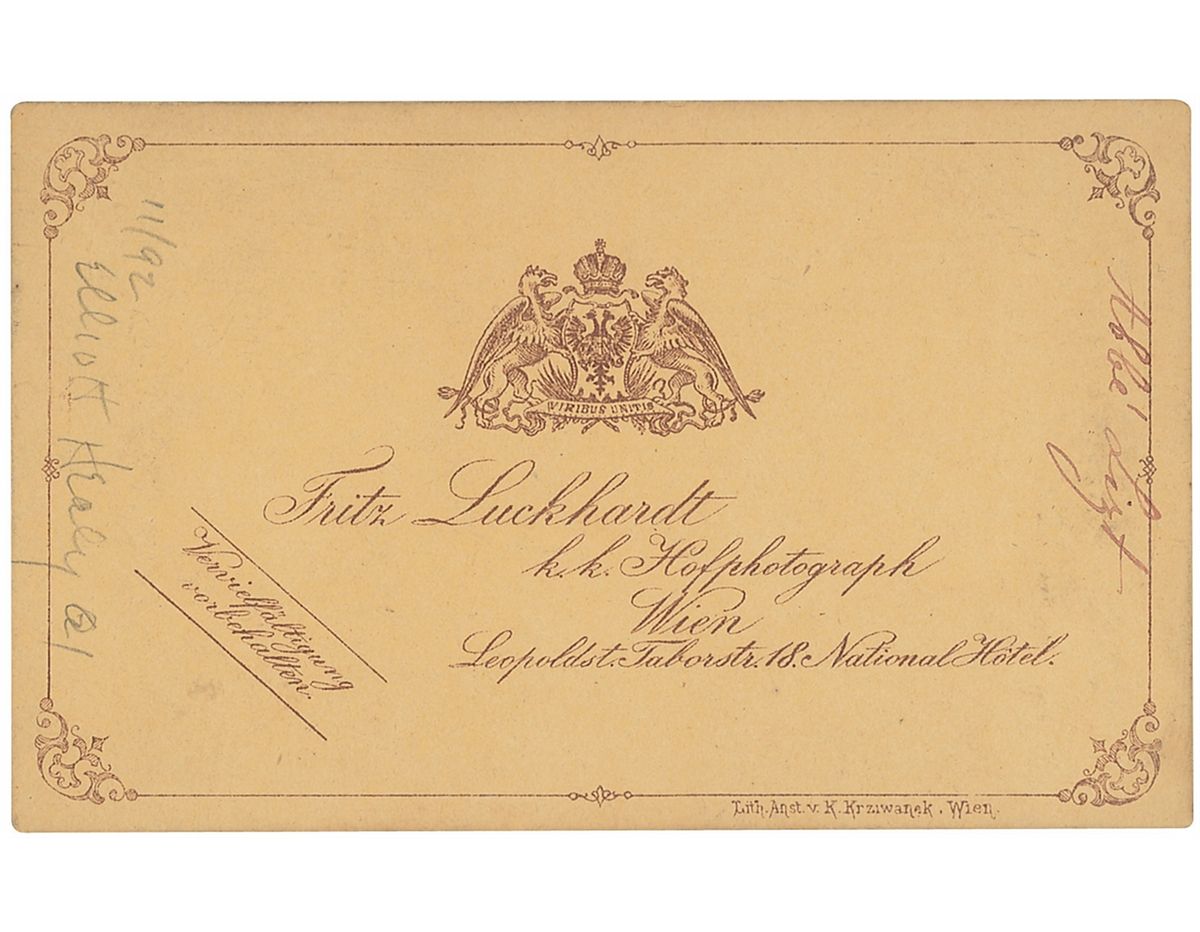 VIRIBUS UNITIS
Fritz Luckhardt
k.k. Hofphotograph
Wien
Leopoldst. Taborstr. 18. National Hôtel.
Vervielfältigung
vorbehalten.
Lith. Anst. v. K. Krziwanek, Wien.
11/92
Elliott Healy
Abbé Lizt